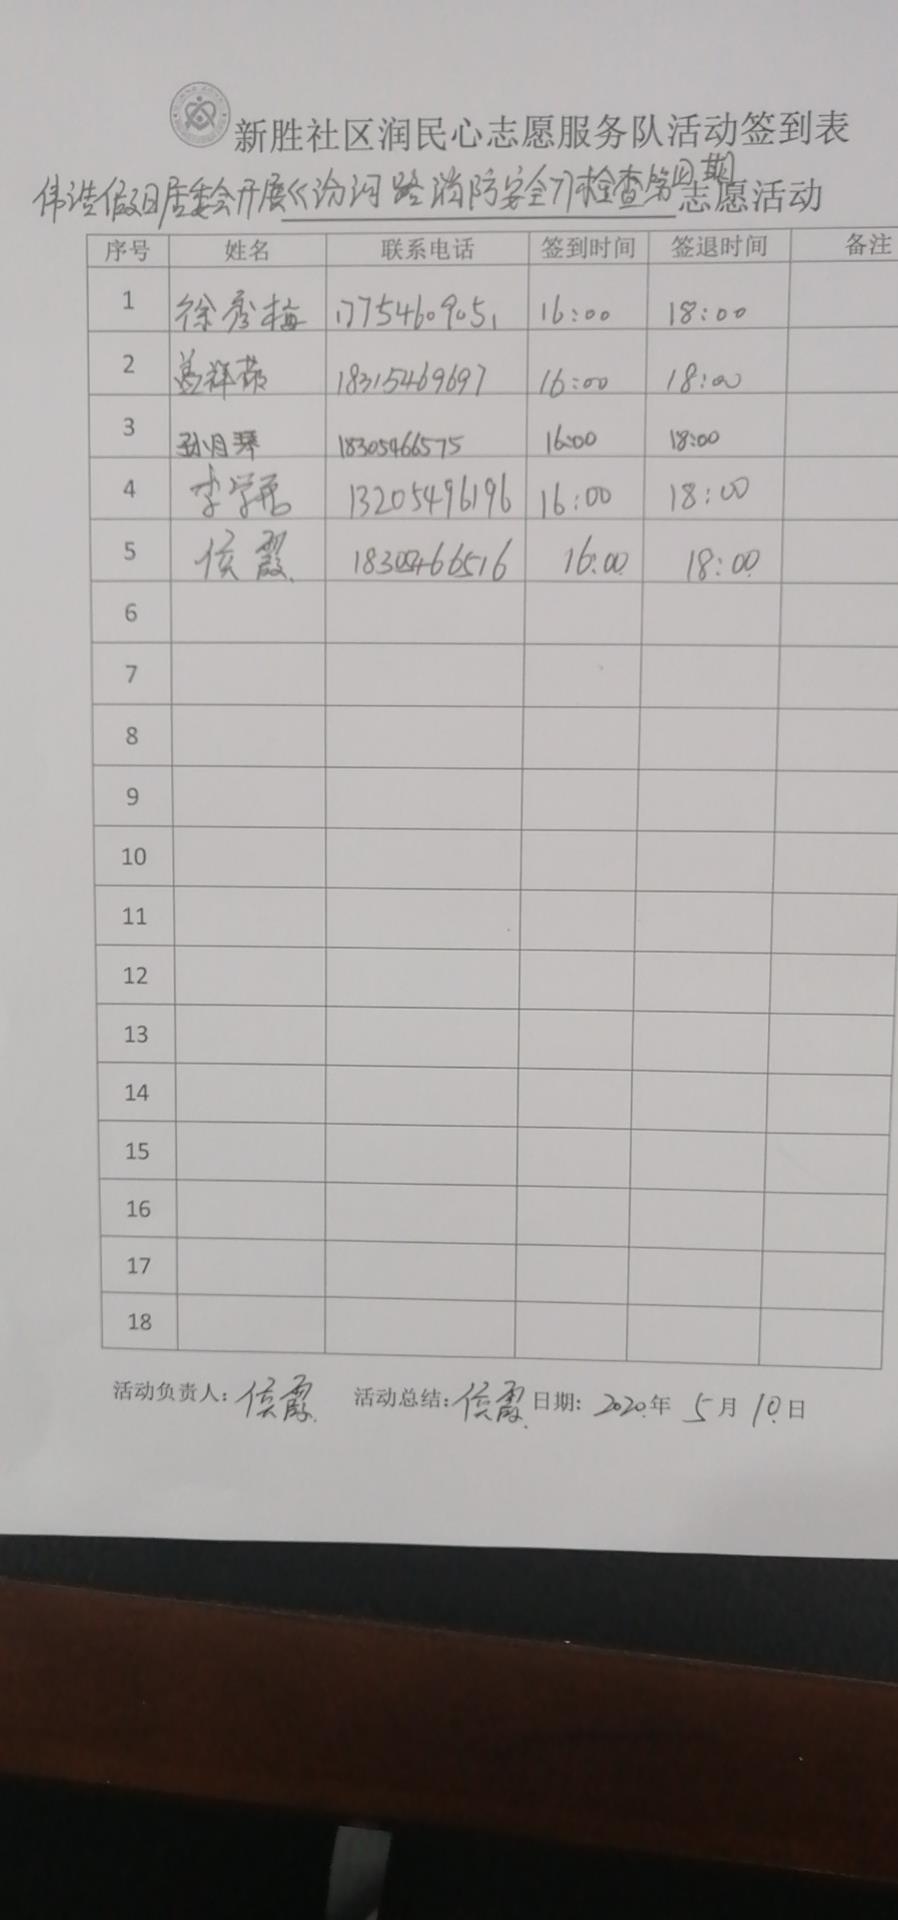 新胜社区润民心志愿服务队活动签到表
伟浩假日居委会开展《汾河路消防安全》检查第四期志愿活动
序号 姓名 联系电话 签到时间 签退时间 备注
1 徐秀梅 17754609051 16:00 18:00
2 18315469697 16:00 18:00
3 孙月琴 18305466575 16:00 18:00
4 李学 13205496196 16:00 18:00
5 侯霞 18305466516 16:00 18:00
6
7
8
9
10
11
12
13
14
15
16
17
18
活动负责人：侯霞 活动总结：侯霞 日期：2020年 5月 10日